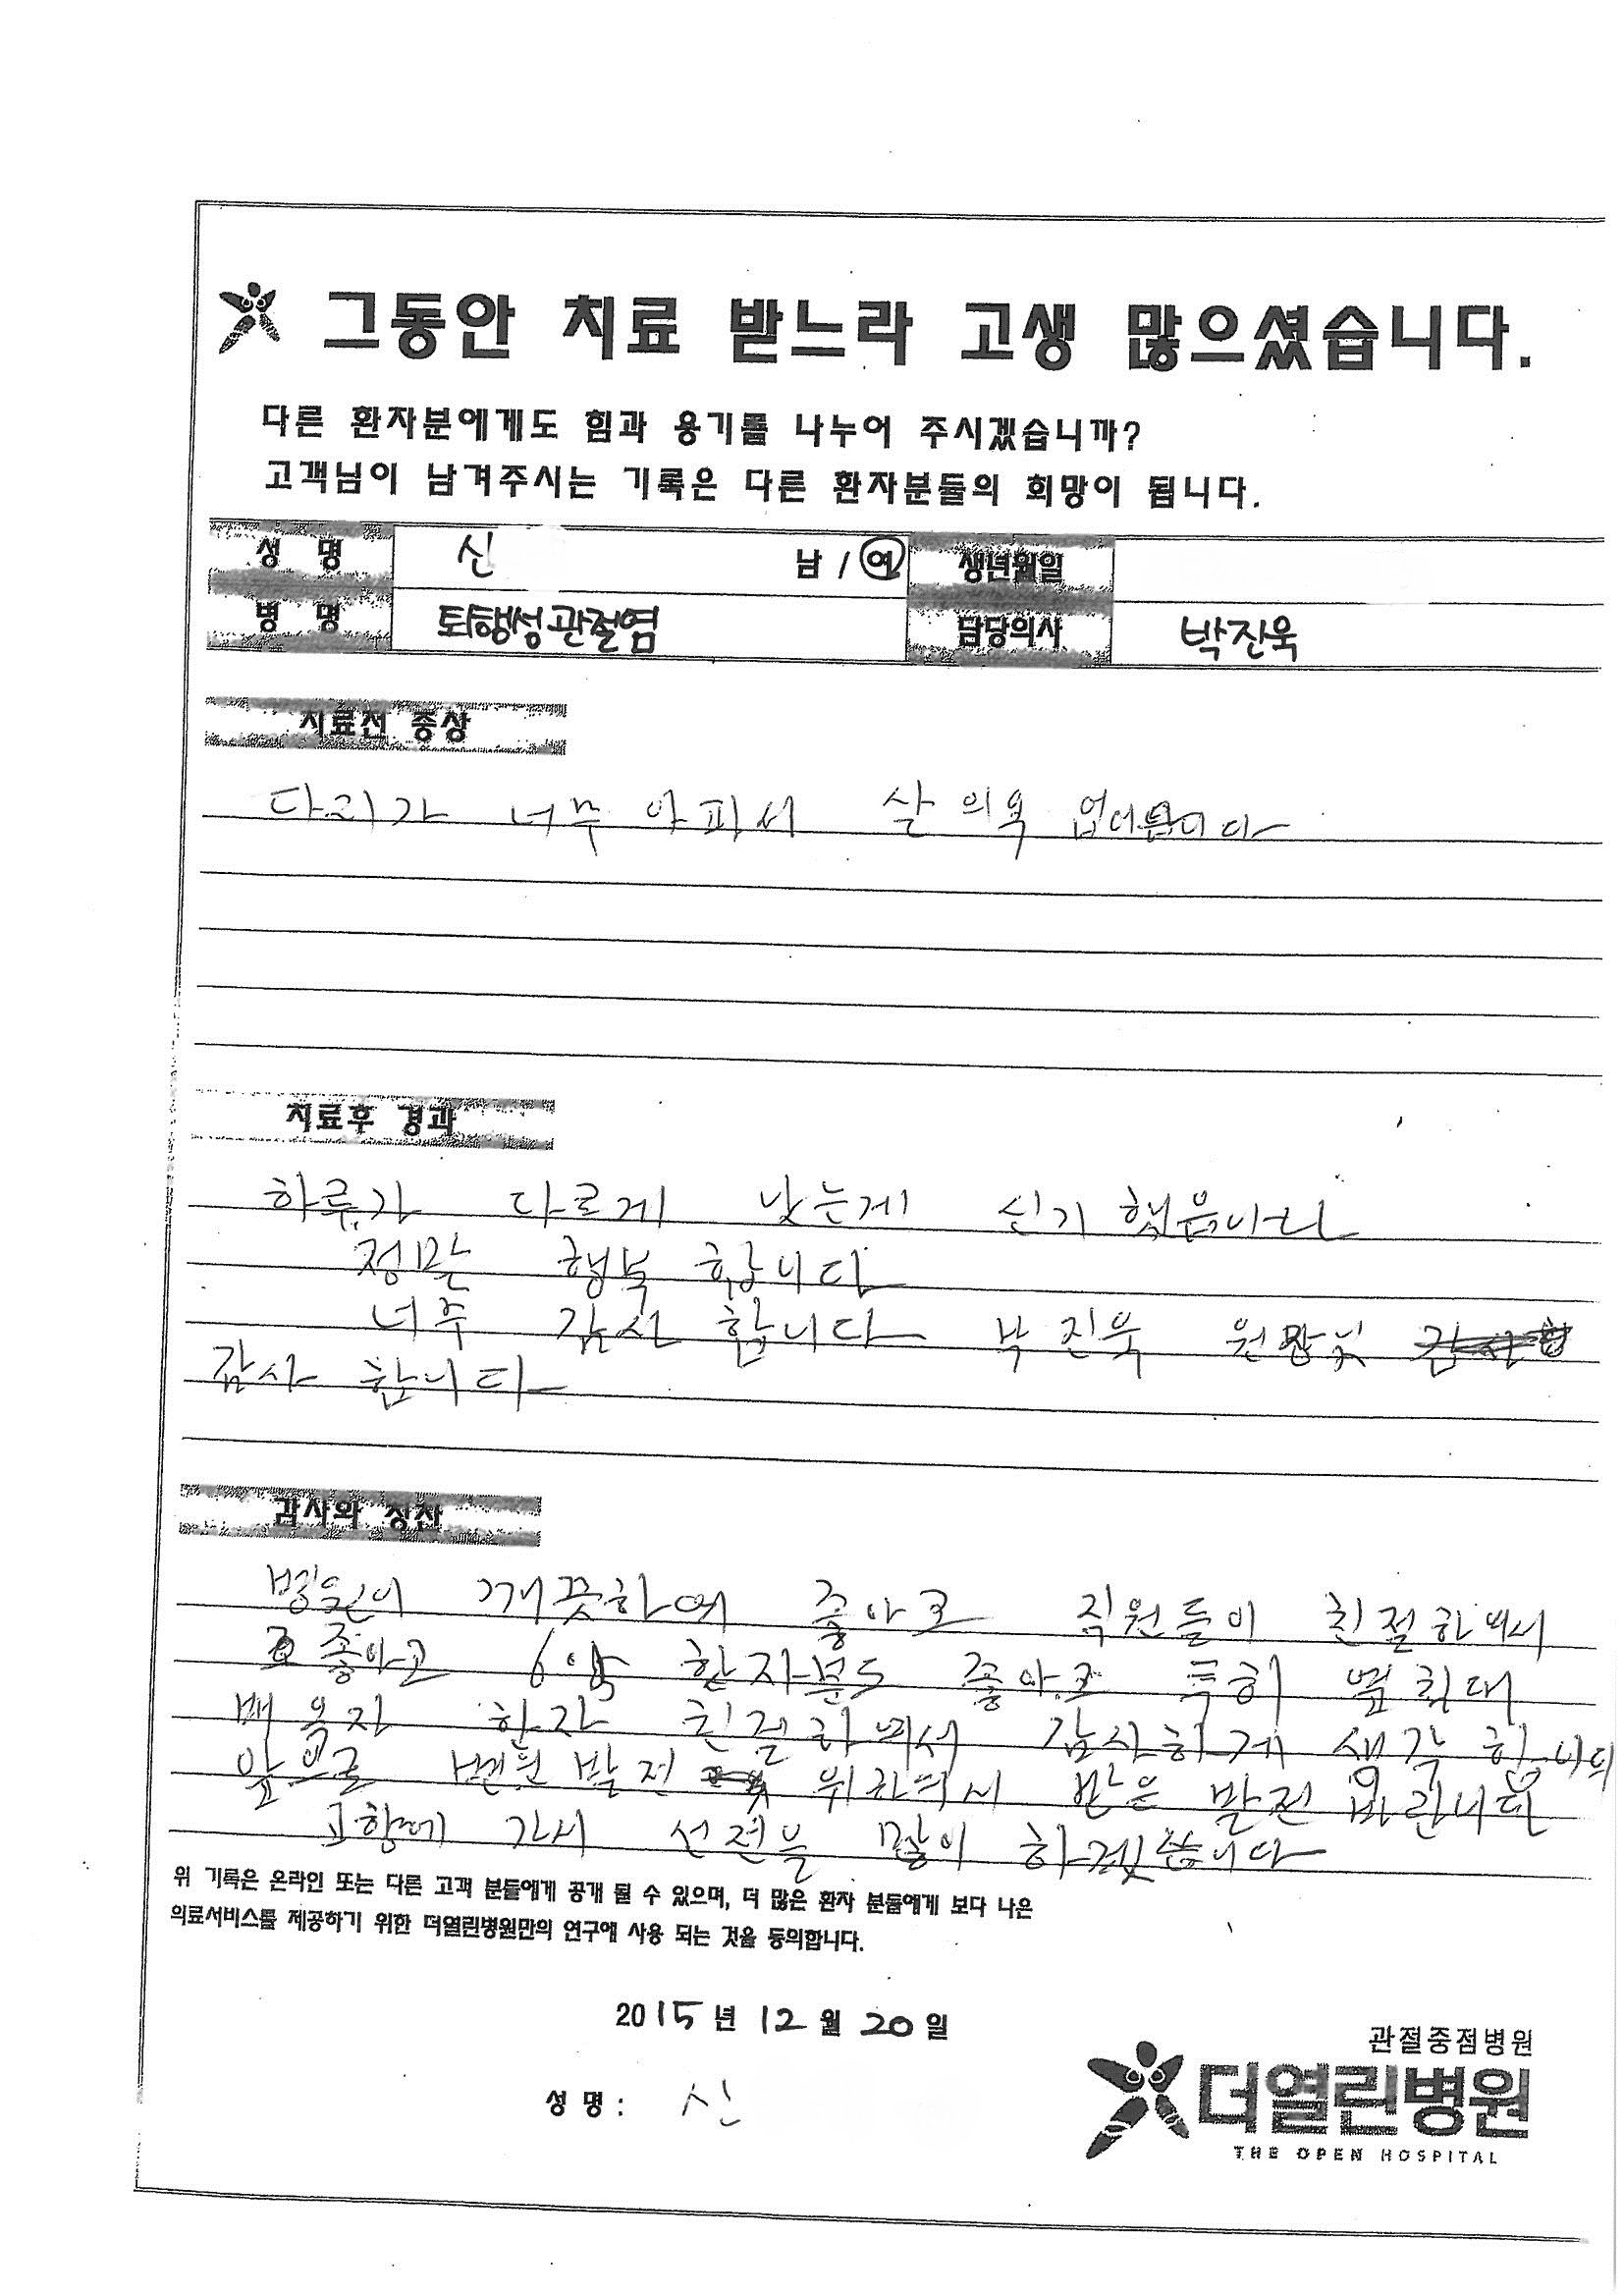 그동안 치료 받느라 고생 많으셨습니다.
다른 환자분에게도 힘과 용기를 나누어 주시겠습니까?
고객님이 남겨주시는 기록은 다른 환자분들의 희망이 됩니다.
성 명 신 남 / 여 생년월일
병 명 퇴행성관절염 담당의사 박진욱
치료전 증상
다리가 너무 아파서 살 의욕
치료후 경과
하루가 다르게 낫는게 신기 했읍니다
정말 행복 합니다
너무 감사 합니다 박진욱 원장님
감사 합니다
감사와 칭찬
병원이 깨끗하여 좋아고 직원들이
좋아고 환자분도 좋아고 특히
감사하게 생각
앞으로 발전 발전
고향에 가서 선전을 많이 하겠습니다
위 기록은 온라인 또는 다른 고객 분들에게 공개 될 수 있으며, 더 많은 환자 분들에게 보다 나은
의료서비스를 제공하기 위한 더열린병원만의 연구에 사용 되는 것을 동의합니다.
2015년 12월 20일
성 명 : 신
관절중점병원
더열린병원
THE OPEN HOSPITAL